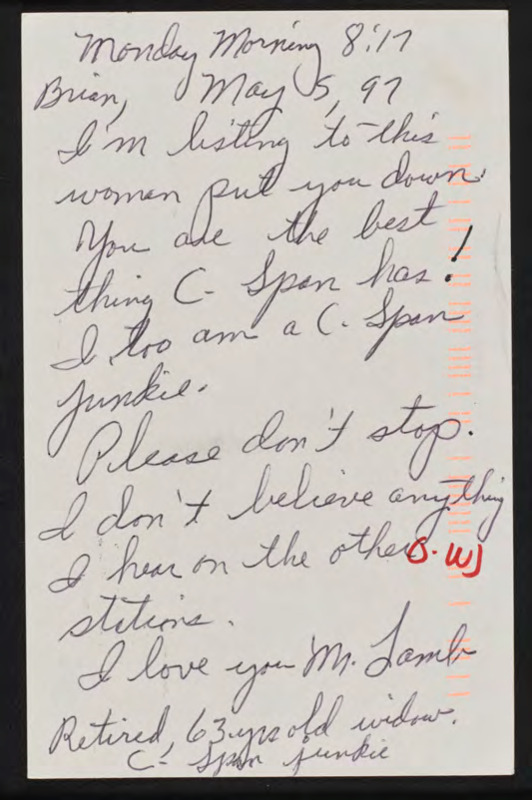 Monday Morning 8:17
Brian, May 5, 97
I'm listing to this
woman put you down.
You are the best
thing C-Span has!
I too am a C-Span
junkie.
Please don't stop.
I don't believe anything
I hear on the other
stations.
I love you Mr. Lamb
Retired, 63 yrs old widow.
C-Span junkie